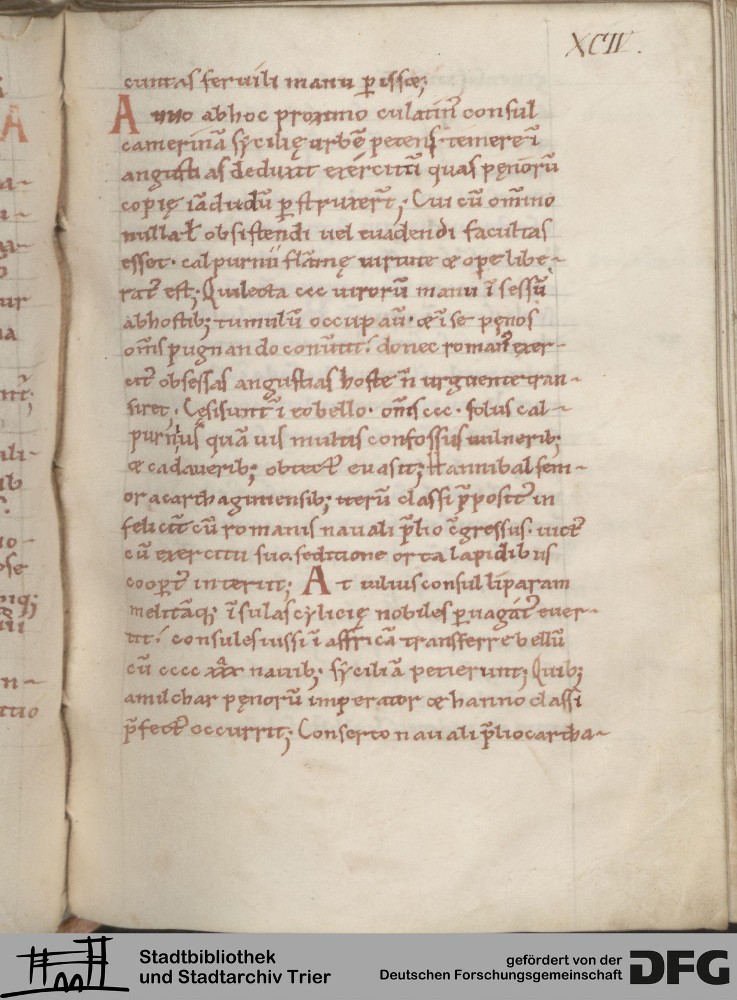 XCIV.
cunctas seruili manu pissæ;
Anno abhoc proximo culatin᷒ consul
camerinā sẏcilię urbē petens temere ī
angustias deduxit exercitū quas pęnorū
copię iādudū p struxer̄t; Cui cū om̄ino
nulla ł obsistendi uel euadendi facultas
esset· calpurnii flāmę uirtute & ope libe-
rat᷒ est; Qui lecta ccc uirorū manu īsessū
ab hostib; tumulū occupau̅· & ī se pęnos
om̄s pugnando conūtit· donec roman᷒ exer-
cit᷒ obsessas angustias hoste n̄ urguente tran-
siret; Cęsi sunt ī eo bello· om̄s ccc· solus cal-
purnius quā uis multis confossus uulnerib;
& cadauerib; obtect᷒ euasit; Hannibal seni-
or a carthaginiensib; iterū classi p̄posit᷒ in
felicit̄ cū romanis nauali p̄lio cgressus· uict᷒
cū exercitu suo· seditione orta lapidibus
coopt᷒ interiit; At uilius consul liparam
melitāq; īsulas cẏlicię nobiles puagat᷒ euer-
tit· consules iussi ī affricā transferre bellū
cū cccc xxx nauib; sẏciliā petierunt; Quib;
amilchar pęnorū imperator & hanno classi
p̄fect᷒ occurrit; Conserto nauali p̄lio cartha-
Stadtbibliothek
und Stadtarchiv Trier
gefördert von der
Deutschen Forschungsgemeinschaft
DFG